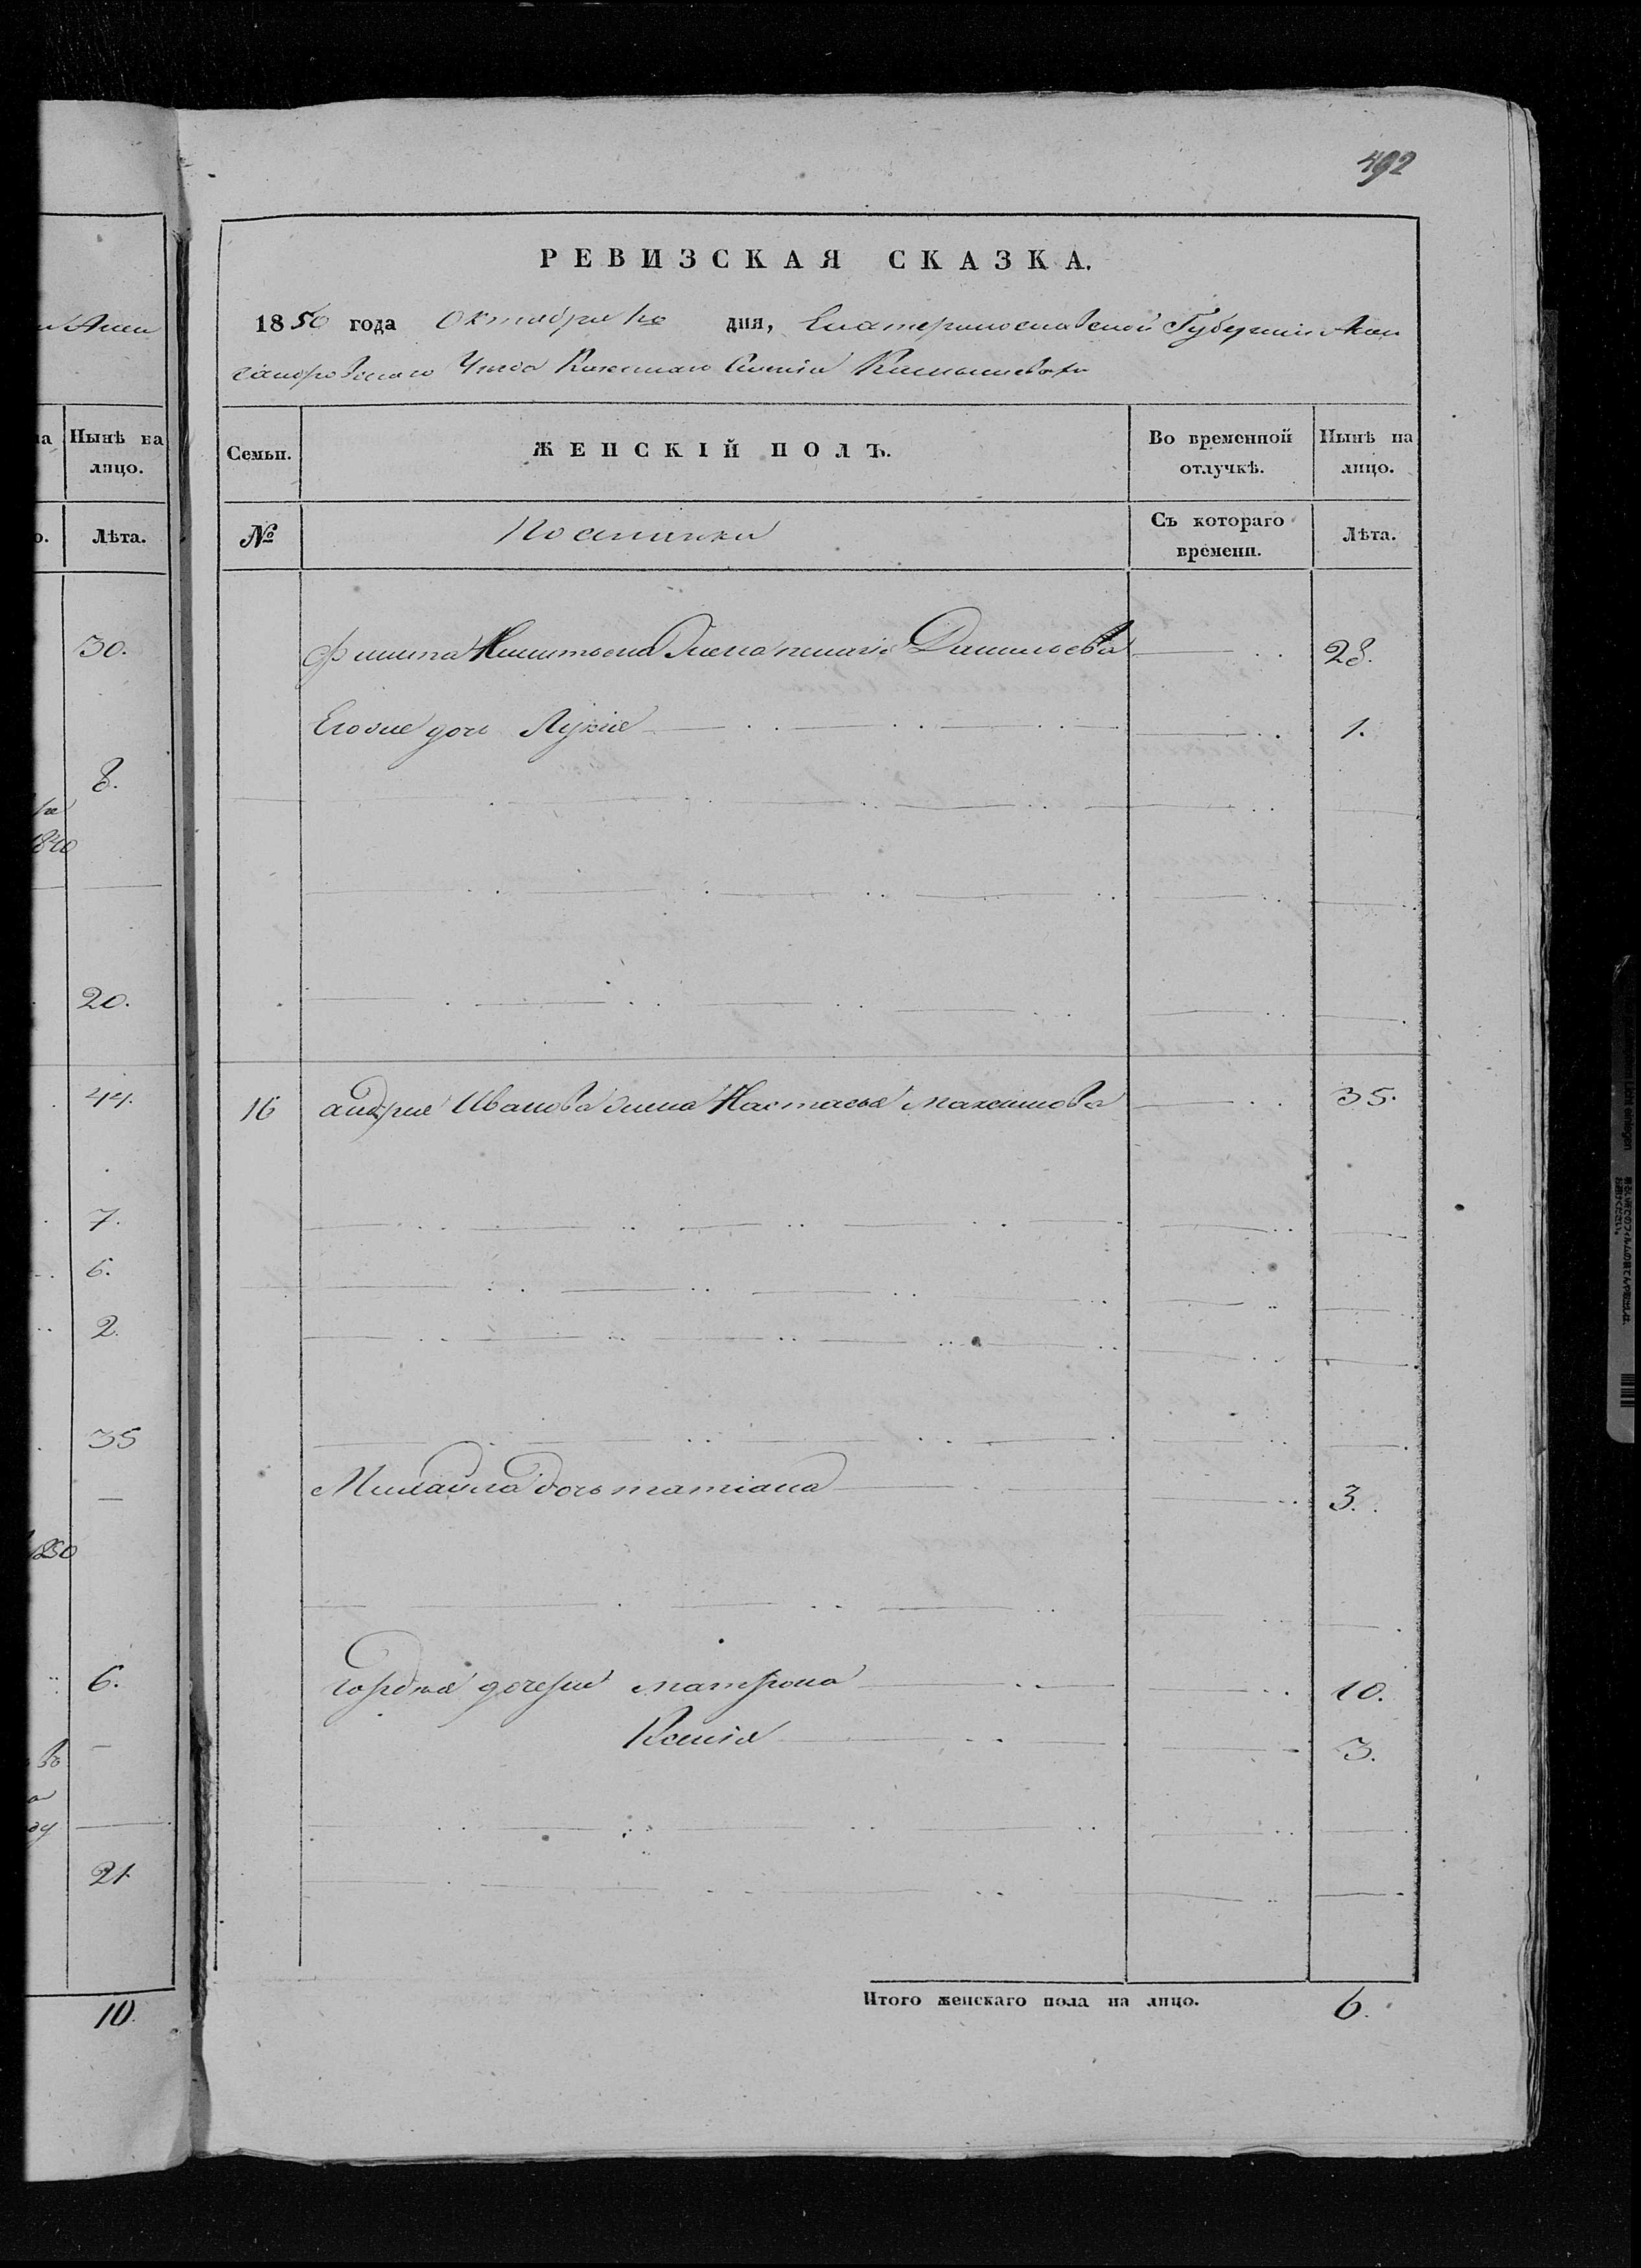 492
РЕВИЗСКАЯ СКАЗКА.
1850 года Октября дня, Екатеринославской Губернии Алек
сандровского Уезда Казенного Селения
Семьи. ЖЕНСКІЙ ПОЛЪ. Во временной отлучкѣ. Нынѣ на лицо.
№ Поселянки Съ котораго времени. Лѣта.
Филипа Никитьева Жена Данильева 28.
Егоже дочь Лукия 1.
16 андрия Иванова жена Настасья максимова 35.
Михайла дочь татіана 3.
гордѣя дочери матрона 10.
Ксенія 3.
Итого женскаго пола на лицо. 6.
Нынѣ на лицо.
Лѣта.
30.
8.
20.
44.
7.
6.
2.
35
1850
6.
21
10.